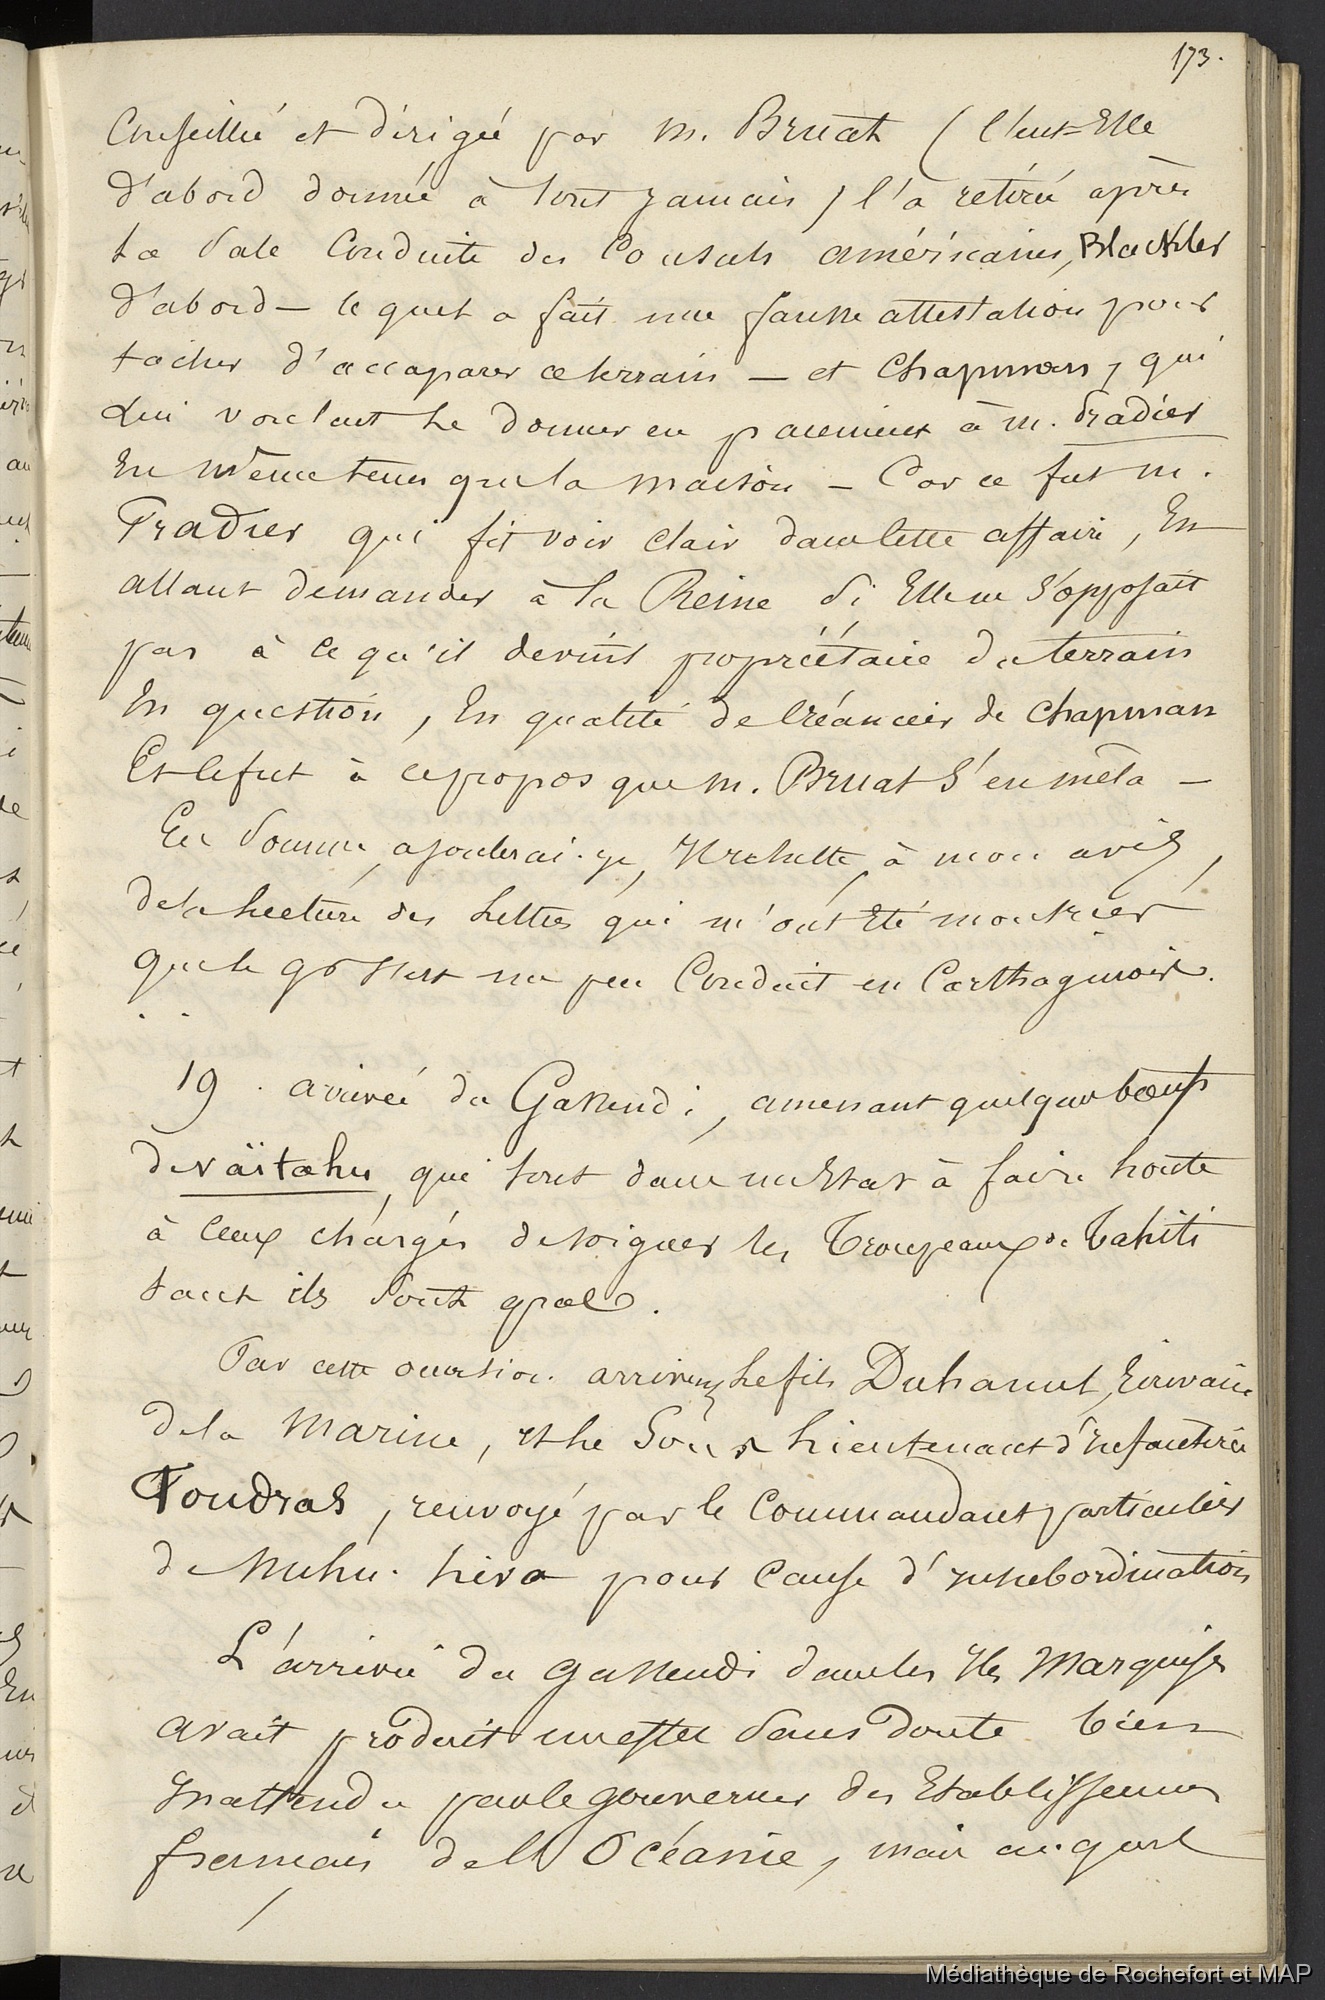 173.
Conseillé et dirigée par M. Bruat (l'eut-Elle
d'abord donnée à tout jamais) l'a retirée après
la sale Conduite des Consuls américains, Blackler
d'abord — lequel a fait une fausse attestation pour
tacher d'accaparer ce terrain — et Chapman, qui
lui voulant le donner en paiement à M. Pradier
En même tems que la maison — Car ce fut M.
Pradier qui fit voir clair dans cette affaire, En
allant demander à la Reine si Elle ne s'opposait
pas à ce qu'il devint propriétaire du terrain
En question, En qualité de Créancier de Chapman
Et ce fut à ce propos que M. Bruat s'en mêla —
En somme, ajouterai-je, il résulte, à mon avis,
de la lecture des lettres qui m'ont été montrées
que le Gr s'est un peu Conduit en Carthaginois.
19. arrivée du Gassendi, amenant quelques bœufs
de väitahu, qui sont dans un Etat à faire honte
à ceux chargés de soigner les Troupeaux de Tahiti
tant ils sont gras.
Par cette occasion arrivent le fils Duhamel, Ecrivain
de la Marine, et le Sous Lieutenant d'Infanterie
Foudras, renvoyé par le Commandant particulier
de Nuhu-hiva pour Cause d'Insubordination
L'arrivée du Gassendi dans les Iles Marquises
avait produit un effet sans doute bien
Inattendu par le gouverneur des Etablissemens
français de l'Océanie, mais auquel
Médiathèque de Rochefort et MAP